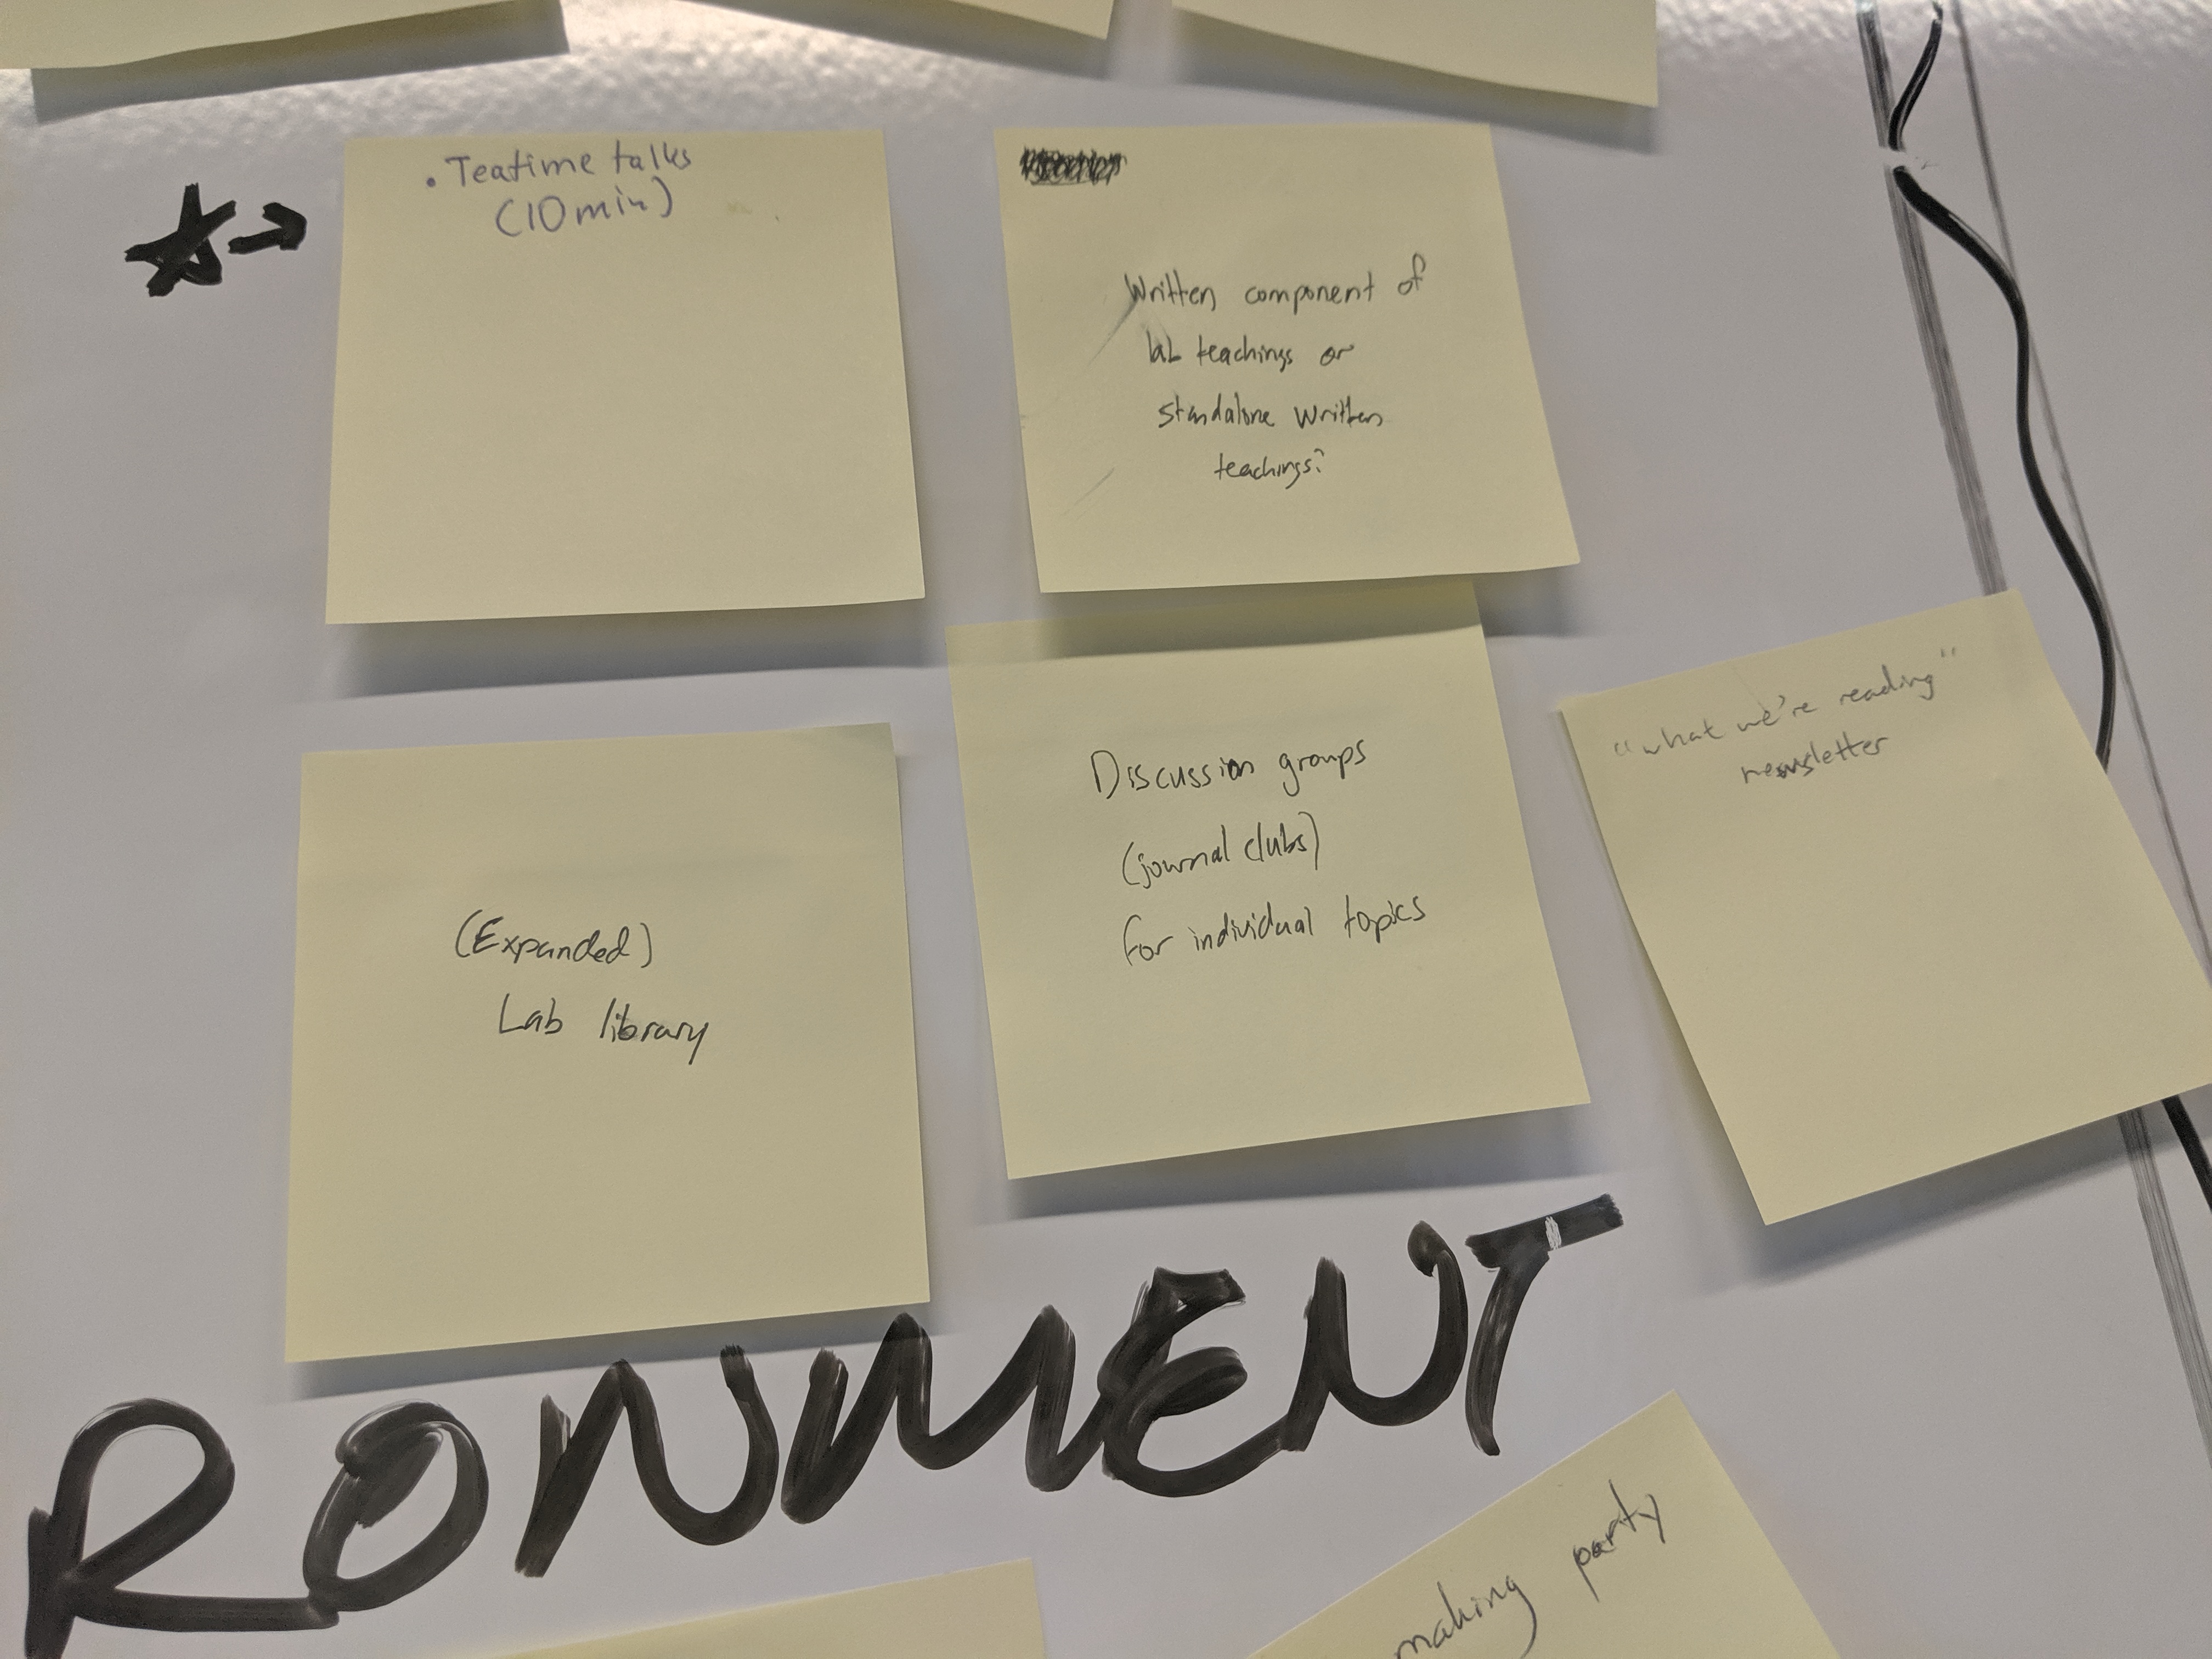 • Teatime talks
(10 min)
Written component of
lab teachings or
standalone written
teachings?
(Expanded)
Lab library
Discussion groups
(journal clubs)
for individual topics
"what we're reading"
newsletter
RONMENT
making party